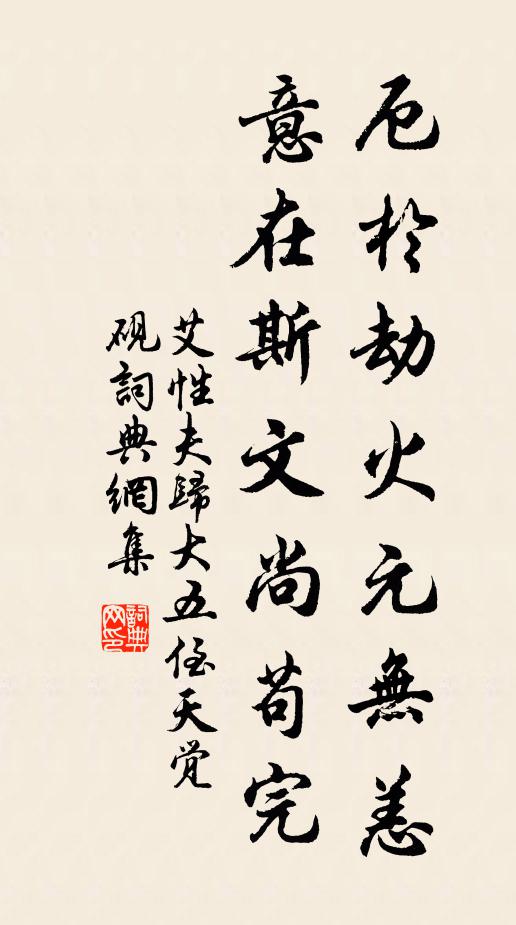 厄於劫火元無恙
意在斯文尚苟完
艾性夫歸大五侄天覺
硯詞典網集
詞典网印